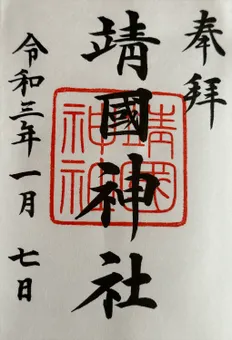 奉拝
靖國神社
靖國
神社
令和三年一月七日